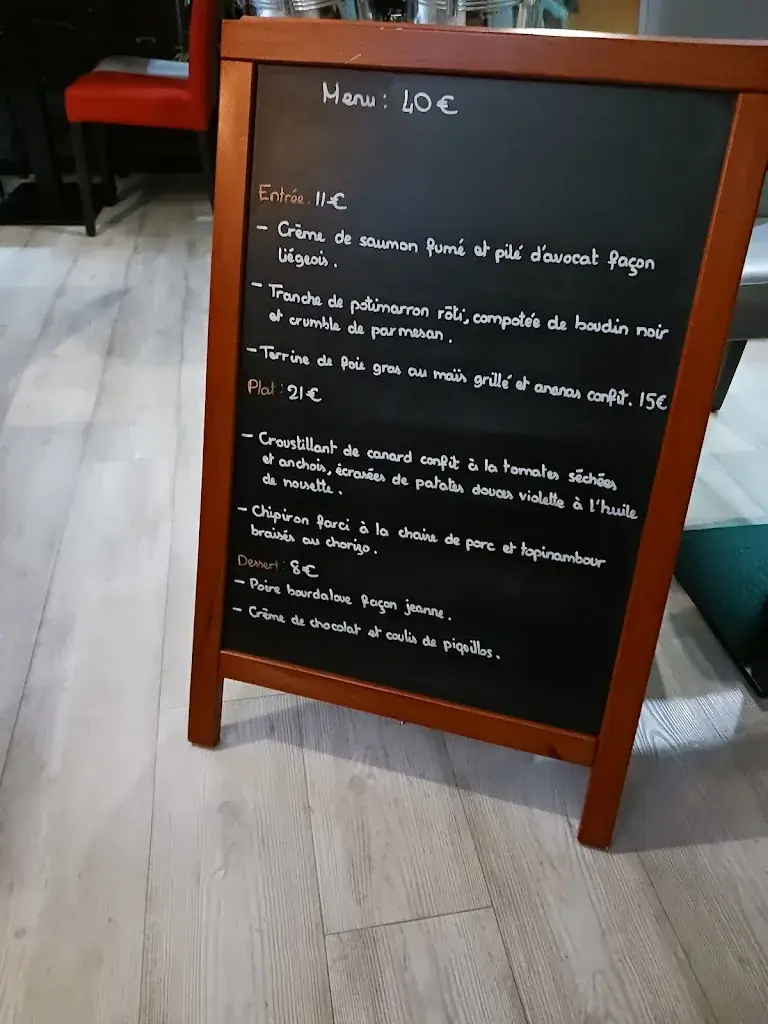 Menu : 40€
Entrée. 11€
- Crème de saumon fumé et pilé d'avocat façon
liégeois.
- Tranche de potimarron rôti, compotée de boudin noir
et crumble de parmesan.
- Terrine de foie gras au maïs grillé et ananas confit. 15€
Plat : 21€
- Croustillant de canard confit à la tomates séchées
et anchois, écrasées de patates douces violette à l'huile
de noisette.
- Chipiron farci à la chaire de porc et topinambour
braisés au chorizo.
Dessert : 8€
- Poire bourdaloue façon jeanne.
- Crème de chocolat et coulis de piquillos.